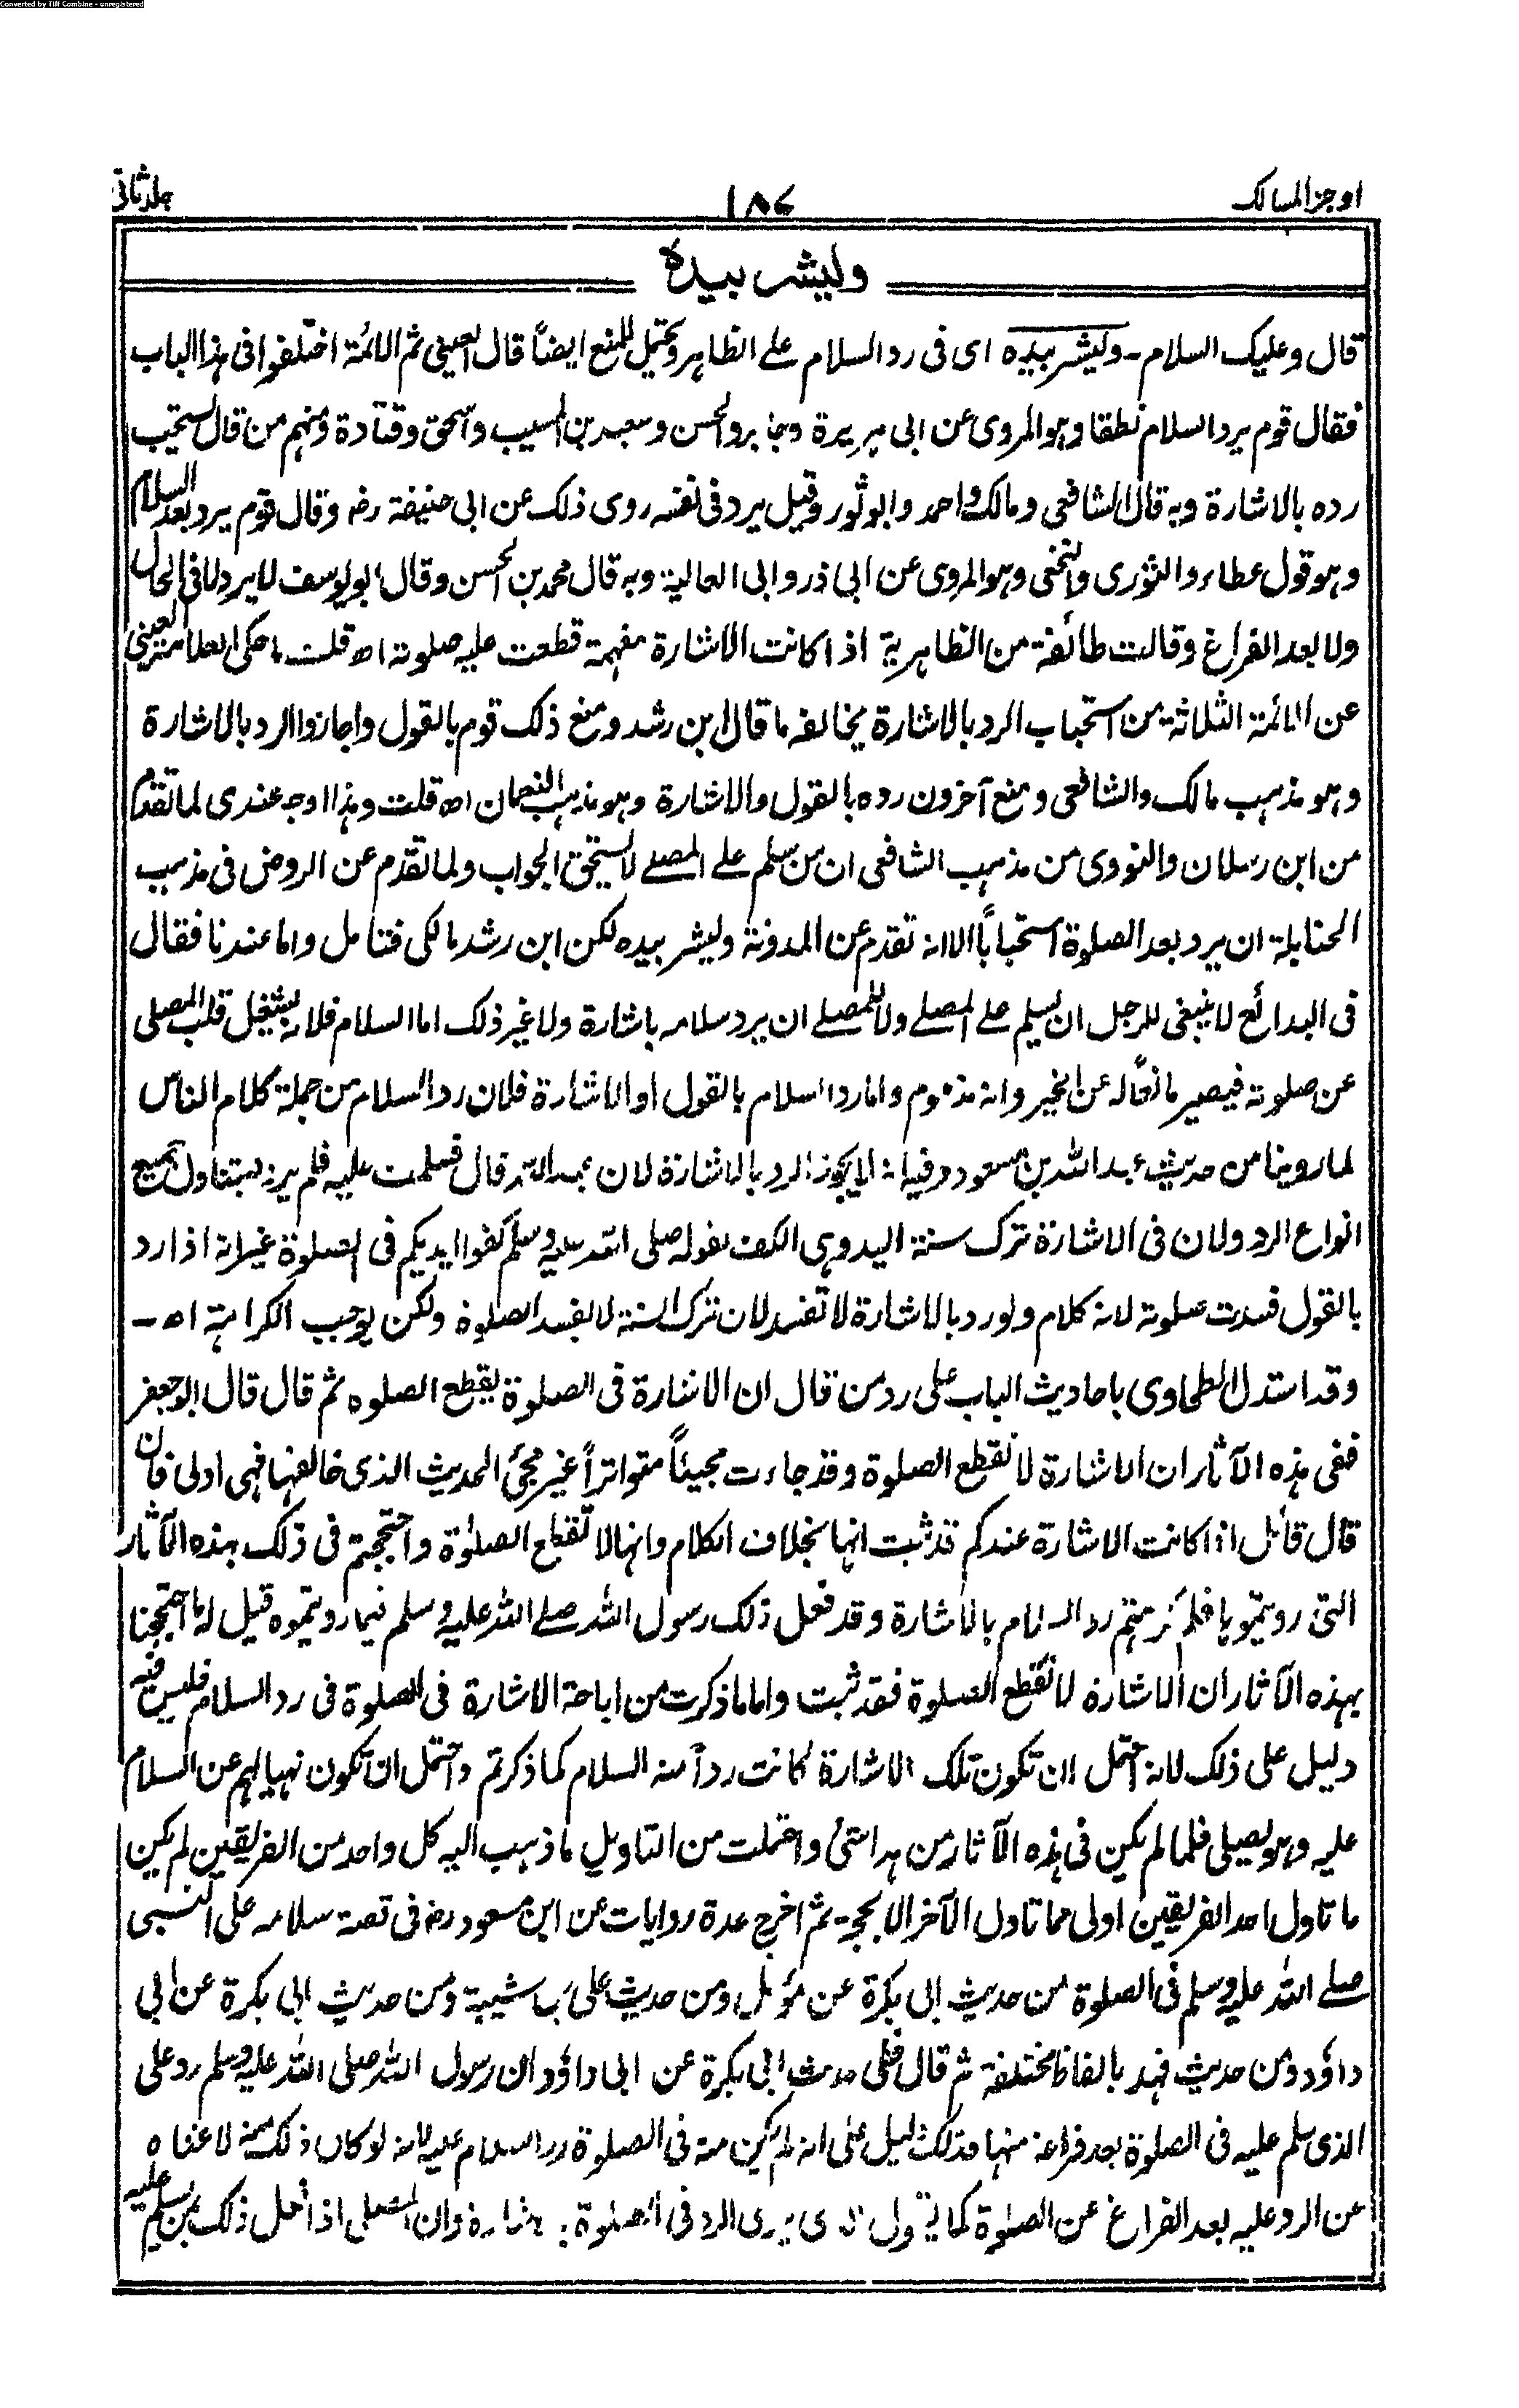 Converted by Tiff Combine - unregistered
اوجز المسالك
١٨٧
جلد ثانى
وليشر بيده
قال وعليك السلام - وليشر بيده اى فى رد السلام على الظاهر ويحتمل للمنع ايضاً قال العينى ثم الائمة اختلفوا فى هذا الباب
فقال قوم يرد السلام نطقا وهو المروى عن ابى هريرة وجابر والحسن وسعيد بن المسيب واسحق وقتادة ومنهم من قال يستحب
رده بالاشارة وبه قال الشافعى ومالك واحمد وابو ثور وقيل يرد فى نفسه روى ذلك عن ابى حنيفة رض وقال قوم يرد بعد السلام
وهو قول عطاء والثورى والنخعى وهو المروى عن ابى ذر وابى العالية وبه قال محمد بن الحسن وقال ابو يوسف لا يرد لا فى الحال
ولا بعد الفراغ وقالت طائفة من الظاهرية اذا كانت الاشارة مفهمة قطعت عليه صلوته اھ قلت ما حكى العلامة العينى
عن الائمة الثلاثة من استحباب الرد بالاشارة يخالفه ما قال ابن رشد ومنع ذلك قوم بالقول واجازوا الرد بالاشارة
وهو مذهب مالك والشافعى ومنع آخرون رده بالقول والاشارة وهو مذهب النعمان اھ قلت وهذا اوجه عندى لما تقدم
من ابن رسلان والنووى من مذهب الشافعى ان من سلم على المصلے لا يستحق الجواب ولما تقدم عن الروض فى مذهب
الحنابلة ان يرد بعد الصلوة استحباباً الا انه تقدم عن المدونة وليشر بيده لكن ابن رشد مالكى فتامل واما عندنا فقال
فى البدائع لا ينبغى للرجل ان يسلم على المصلے ولا للمصلے ان يرد سلامه باشارة ولا غير ذلك اما السلام فلانه يشغل قلب المصلى
عن صلوته فيصير مانعاً له عن الخير وانه مذموم واما رد السلام بالقول او الاشارة فلان رد السلام من جملة كلام الناس
لما روينا من حديث عبد الله بن مسعود وفيه انه لا يجوز الرد بالاشارة لان عبد الله قال فسلمت عليه فلم يرد فيتناول جميع
انواع الرد ولان فى الاشارة ترك سنة اليد وهى الكف لقوله صلى الله عليه وسلم كفوا ايديكم فى الصلوة غير انه اذا رد
بالقول فسدت صلوته لانه كلام ولو رد بالاشارة لا تفسد لان ترك السنة لا يفسد الصلوة ولكن يوجب الكراهة اھ -
وقد استدل الطحاوى باحاديث الباب على رد من قال ان الاشارة فى الصلوة يقطع الصلوه ثم قال قال ابو جعفر
ففى هذه الآثار ان الاشارة لا تقطع الصلوة وقد جاءت مجيئاً متواتراً غير مجئ الحديث الذى خالفها فهى اولى فان
قال قائل اذا كانت الاشارة عندكم قد ثبت انها بخلاف الكلام وانها لا تقطع الصلوٰة واحتججتم فى ذلك بهذه الآثار
التى رويتموها فلم كرهتم رد السلام بالاشارة وقد فعل ذلك رسول الله صلے الله عليه وسلم فيما رويتموه قيل له ما احتججنا
بهذه الآثار ان الاشارة لا تقطع الصلوة فقد ثبت واما ما ذكرت من اباحة الاشارة فى الصلوة فى رد السلام فليس فيه
دليل على ذلك لانه احتمل ان تكون تلك الاشارة كانت رداً منه السلام كما ذكرتم واحتمل ان تكون نهيا لهم عن السلام
عليه وهو يصلى فلما لم يكن فى هذه الآثار من هذا شئ واحتملت من التاويل ما ذهب اليه كل واحد من الفريقين لم يكن
ما تاول احد الفريقين اولى مما تاول الآخر الا بحجة - ثم اخرج عدة روايات عن ابن مسعود رض فى قصة سلامه على النبى
صلے الله عليه وسلم فى الصلوة من حديث ابى بكرة عن مؤمل ومن حديث على بن شيبة ومن حديث ابى بكرة عن ابى
داؤد ومن حديث فهد بالفاظ مختلفة ثم قال ففى حديث ابى بكرة عن ابى داؤد ان رسول الله صلى الله عليه وسلم رد على
الذى سلم عليه فى الصلوة بعد فراغه منها فذلك دليل على انه لم يكن منه فى الصلوة رد السلام عليه لانه لو كان ذلك منه لاغناه
عن الرد عليه بعد الفراغ عن الصلوة كما يقول الذى يرى الرد فى الصلوة بالاشارة وان المصلى اذا فعل ذلك بمن يسلم عليه